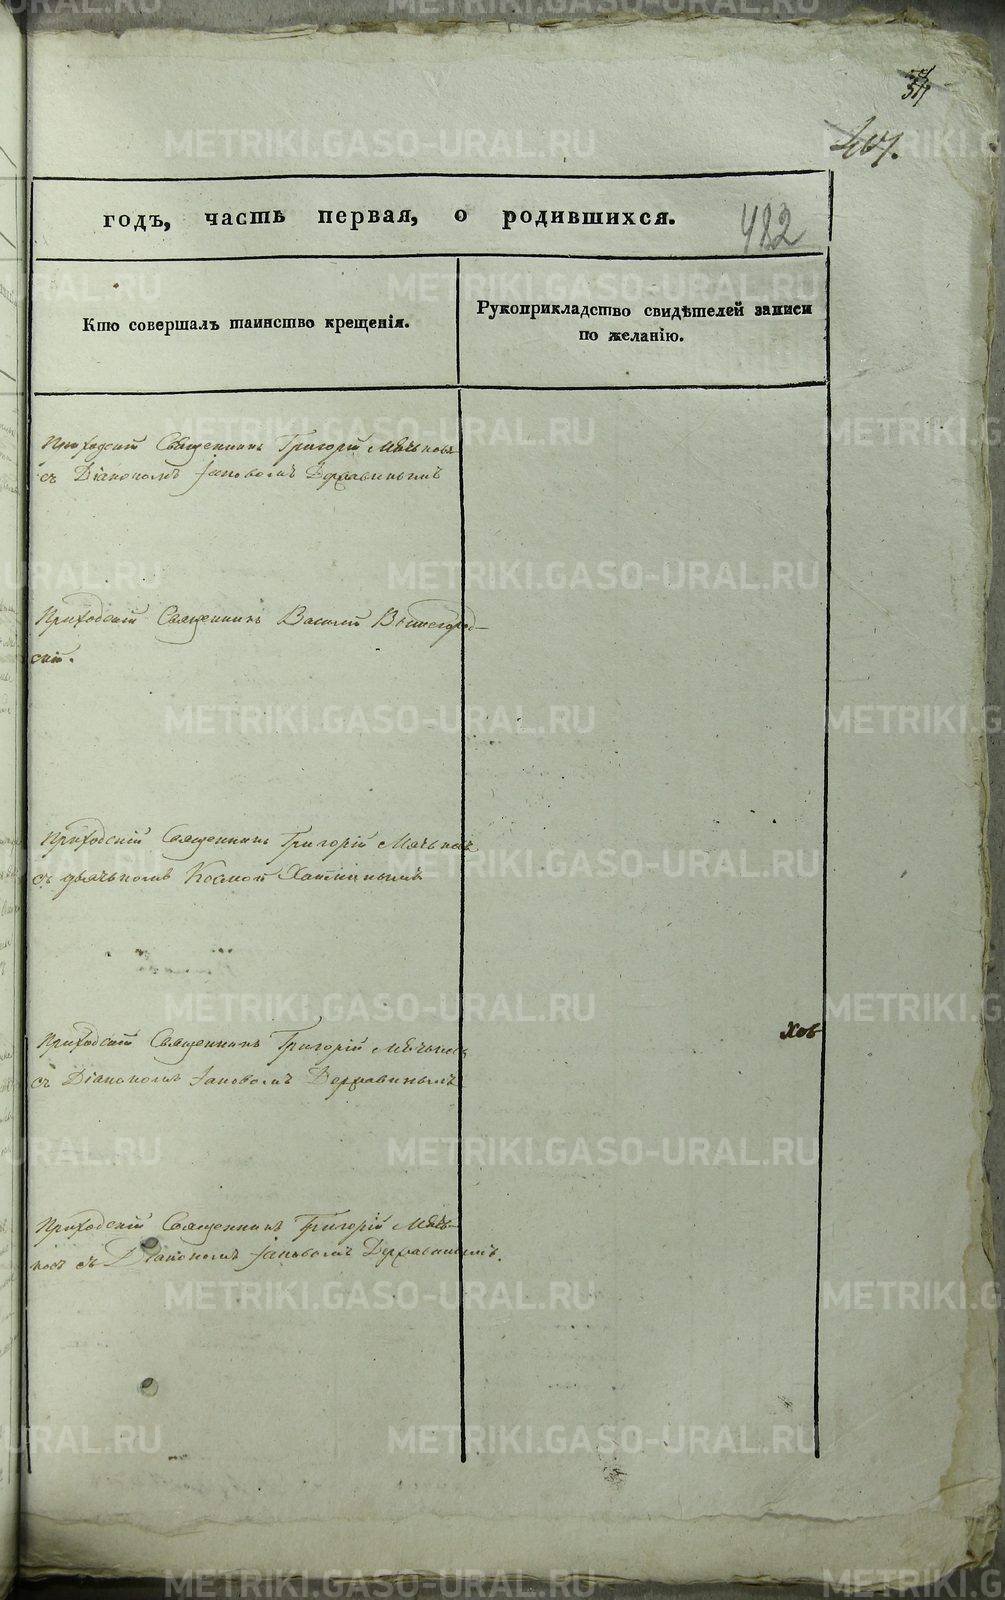 годъ, часть первая, о родившихся.
482
Кто совершалъ таинство крещенія.
Рукоприкладство свидѣтелей записи
по желанію.
Приходскій Священникъ Григорій Мячковъ
съ Діакономъ Іаковомъ Державинымъ
Приходскій Священникъ Василій Вышегород-
скій.
Приходскій Священникъ Григорій Мячковъ
съ дьячькомъ Космою
Приходскій Священникъ Григорій Мячковъ
съ Діакономъ Іаковомъ Державинымъ
Приходскій Священникъ Григорій Мячь-
ковъ съ Діакономъ Іаковомъ Державинымъ.
METRIKI.GASO-URAL.RU